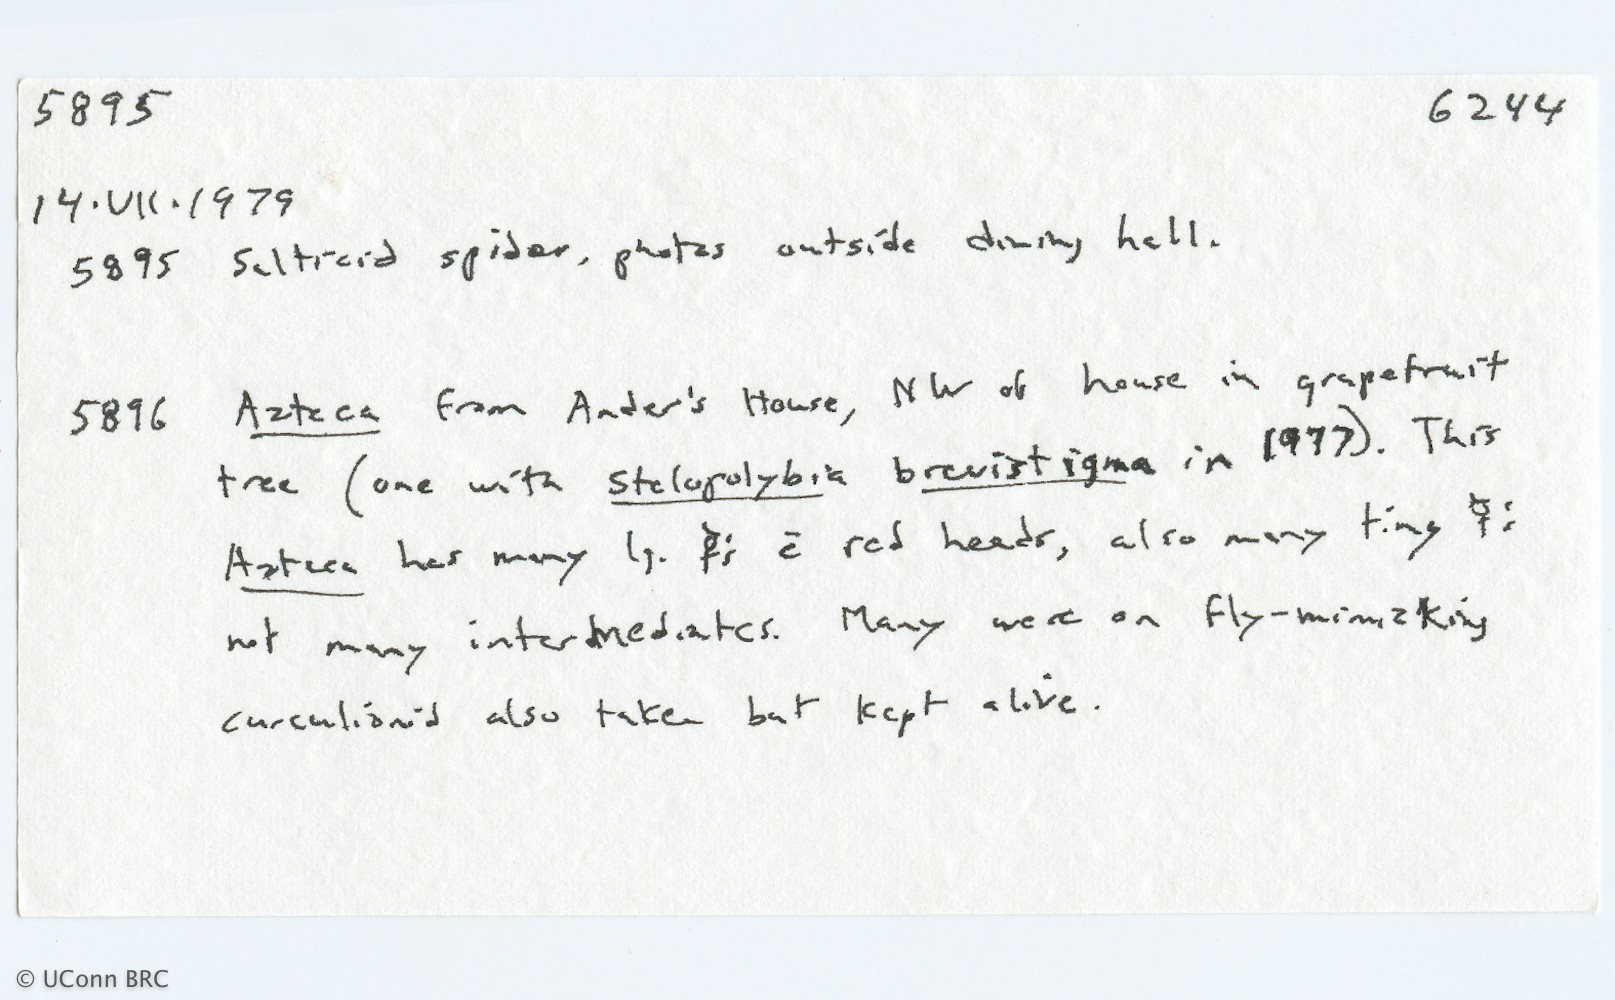 5895 6244
14·VII·1979
5895 Salticid spider, photos outside dining hall.
5896 Azteca from Ander's House, NW of house in grapefruit
tree (one with Stelopolybia brevistigma in 1977). This
Azteca has many lg. ☿'s c̄ red heads, also many tiny ☿'s
not many intermediates. Many were on fly-mimicking
curculionid also taken but kept alive.
© UConn BRC